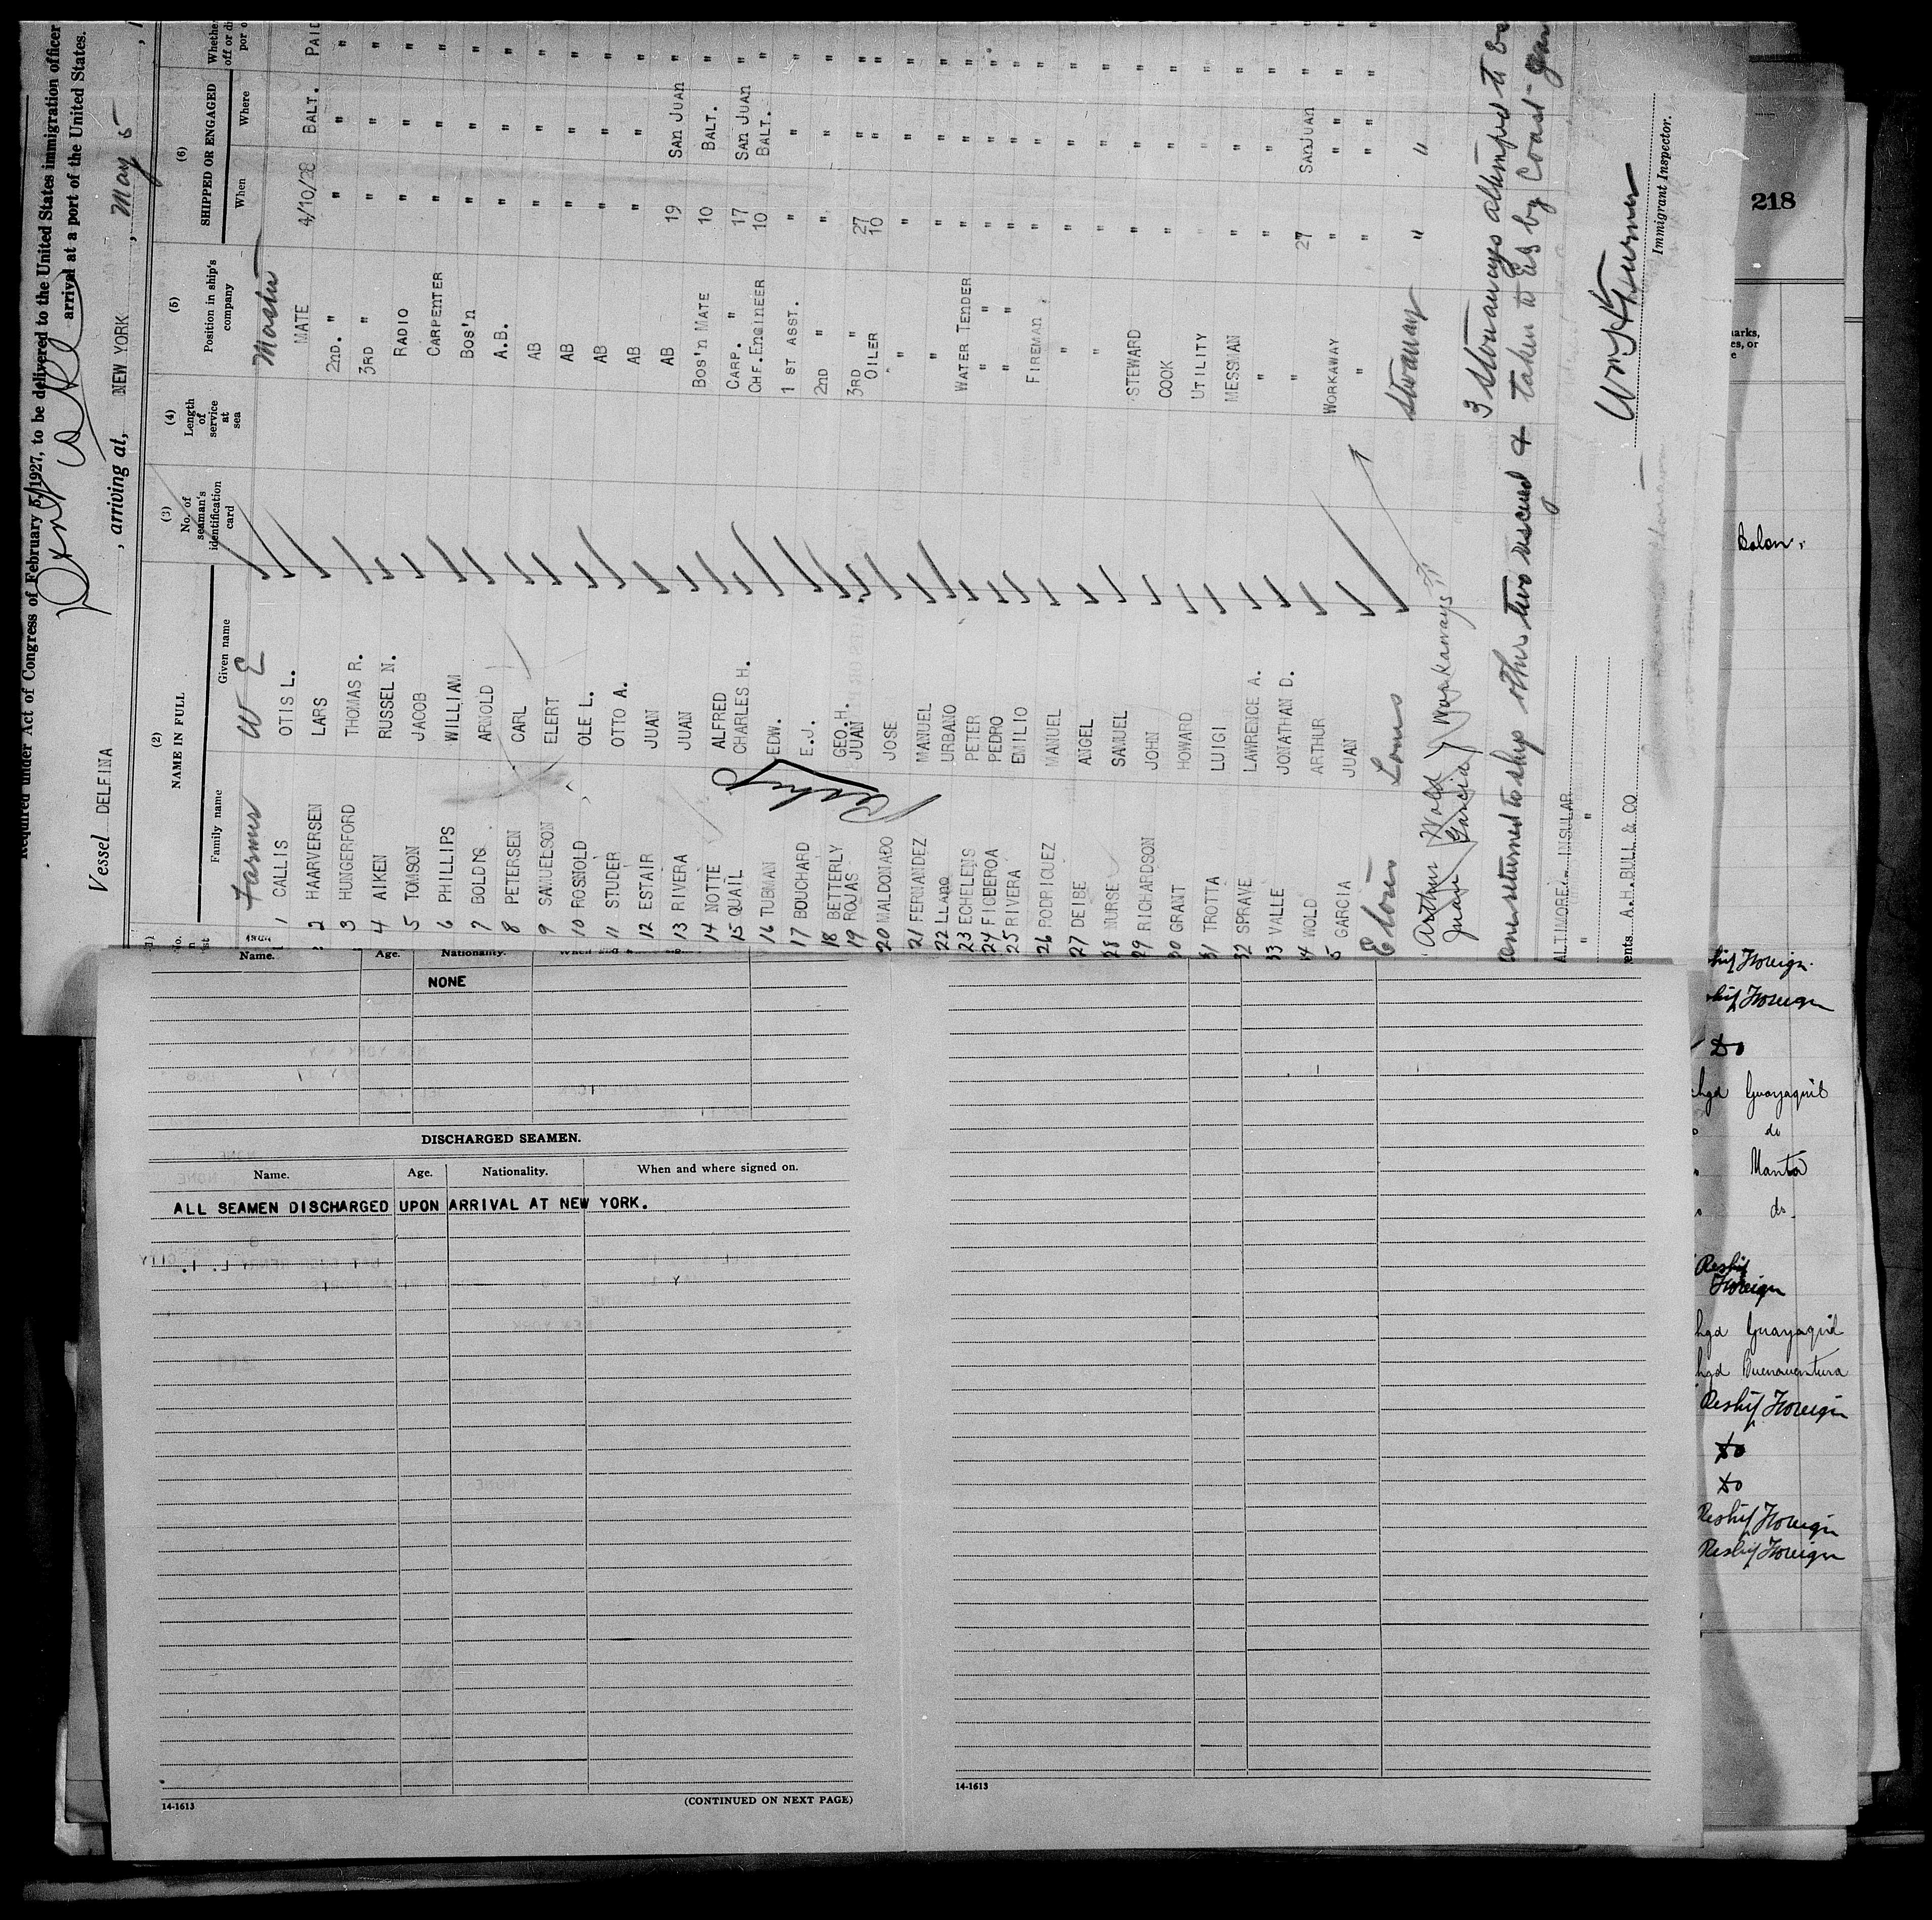 Required under Act of Congress of February 5, 1927, to be delivered to the United States immigration officer
arrival at a port of the United States.
Vessel DELFINA , arriving at, NEW YORK , May 5 ,
(2) (3) (4) (5) (6)
NAME IN FULL No. of seaman's identification card Length of service at sea Position in ship's company SHIPPED OR ENGAGED
Family name Given name When Where
Farmer W E Master
1 CALLIS OTIS L. MATE 4/10/28 BALT. PAID
2 HAARVERSEN LARS 2ND. " " " "
3 HUNGERFORD THOMAS R. 3RD " " " "
4 AIKEN RUSSEL N. RADIO " " "
5 TOMSON JACOB CARPENTER " " "
6 PHILLIPS WILLIAM BOS'N " " "
7 BOLDIG ARNOLD A.B. " " "
8 PETERSEN CARL AB " " "
9 SAMUELSON ELERT AB " " "
10 ROSNOLD OLE L. AB " " "
11 STUDER OTTO A. AB " " "
12 ESTAIR JUAN AB 19 SAN JUAN "
13 RIVERA JUAN BOS'N MATE 10 BALT. "
14 NOTTE ALFRED CARP. " 17 SAN JUAN "
15 QUAIL CHARLES H. CHF.ENGINEER 10 BALT. "
16 TUBMAN EDW. 1 ST ASST. " " "
17 BOUCHARD E.J. 2ND " " " "
18 BETTERLY GEO.H. 3RD " 27 " "
19 ROJAS JUAN OILER 10 " "
20 MALDONADO JOSE " " " "
21 FERNANDEZ MANUEL " " " "
22 LLANO URBANO WATER TENDER " " "
23 ECHELENS PETER " " " " "
24 FIGEEROA PEDRO " " " " "
25 RIVERA EMILIO FIREMAN " " "
26 RODRIGUEZ MANUEL " " " "
27 DEIBE ANGEL " " " "
28 NURSE SAMUEL STEWARD " " "
29 RICHARDSON JOHN COOK " " "
30 GRANT HOWARD UTILITY " " "
31 TROTTA LUIGI MESSMAN " " "
32 SPRAVE LAWRENCE A. " " " "
33 VALLE JONATHAN D. " " " "
4 WOLD ARTHUR WORKAWAY 27 SANJUAN "
5 GARCIA JUAN " " " "
Louis Stowaway " "
Arthur Wold
Juan Garcia Workaways
3 Stowaways attempted to
one returned to ship other two rescued & taken to by Coast
BALTIMORE INSULAR
"
ents A.H.BULL & CO
Immigrant Inspector.
Name. Age. Nationality.
NONE
DISCHARGED SEAMEN.
Name. Age. Nationality. When and where signed on.
ALL SEAMEN DISCHARGED UPON ARRIVAL AT NEW YORK.
14-1613 (CONTINUED ON NEXT PAGE)
14-1613
218
arks,
es, or
e
Foreign
Foreign
Do
hgd Guayaquil
do
Manta
do
Reship
Foreign
hgd Guayaquil
hgd Buenaventura
Reship Foreign
Do
Do
Reship Foreign
Reship Foreign